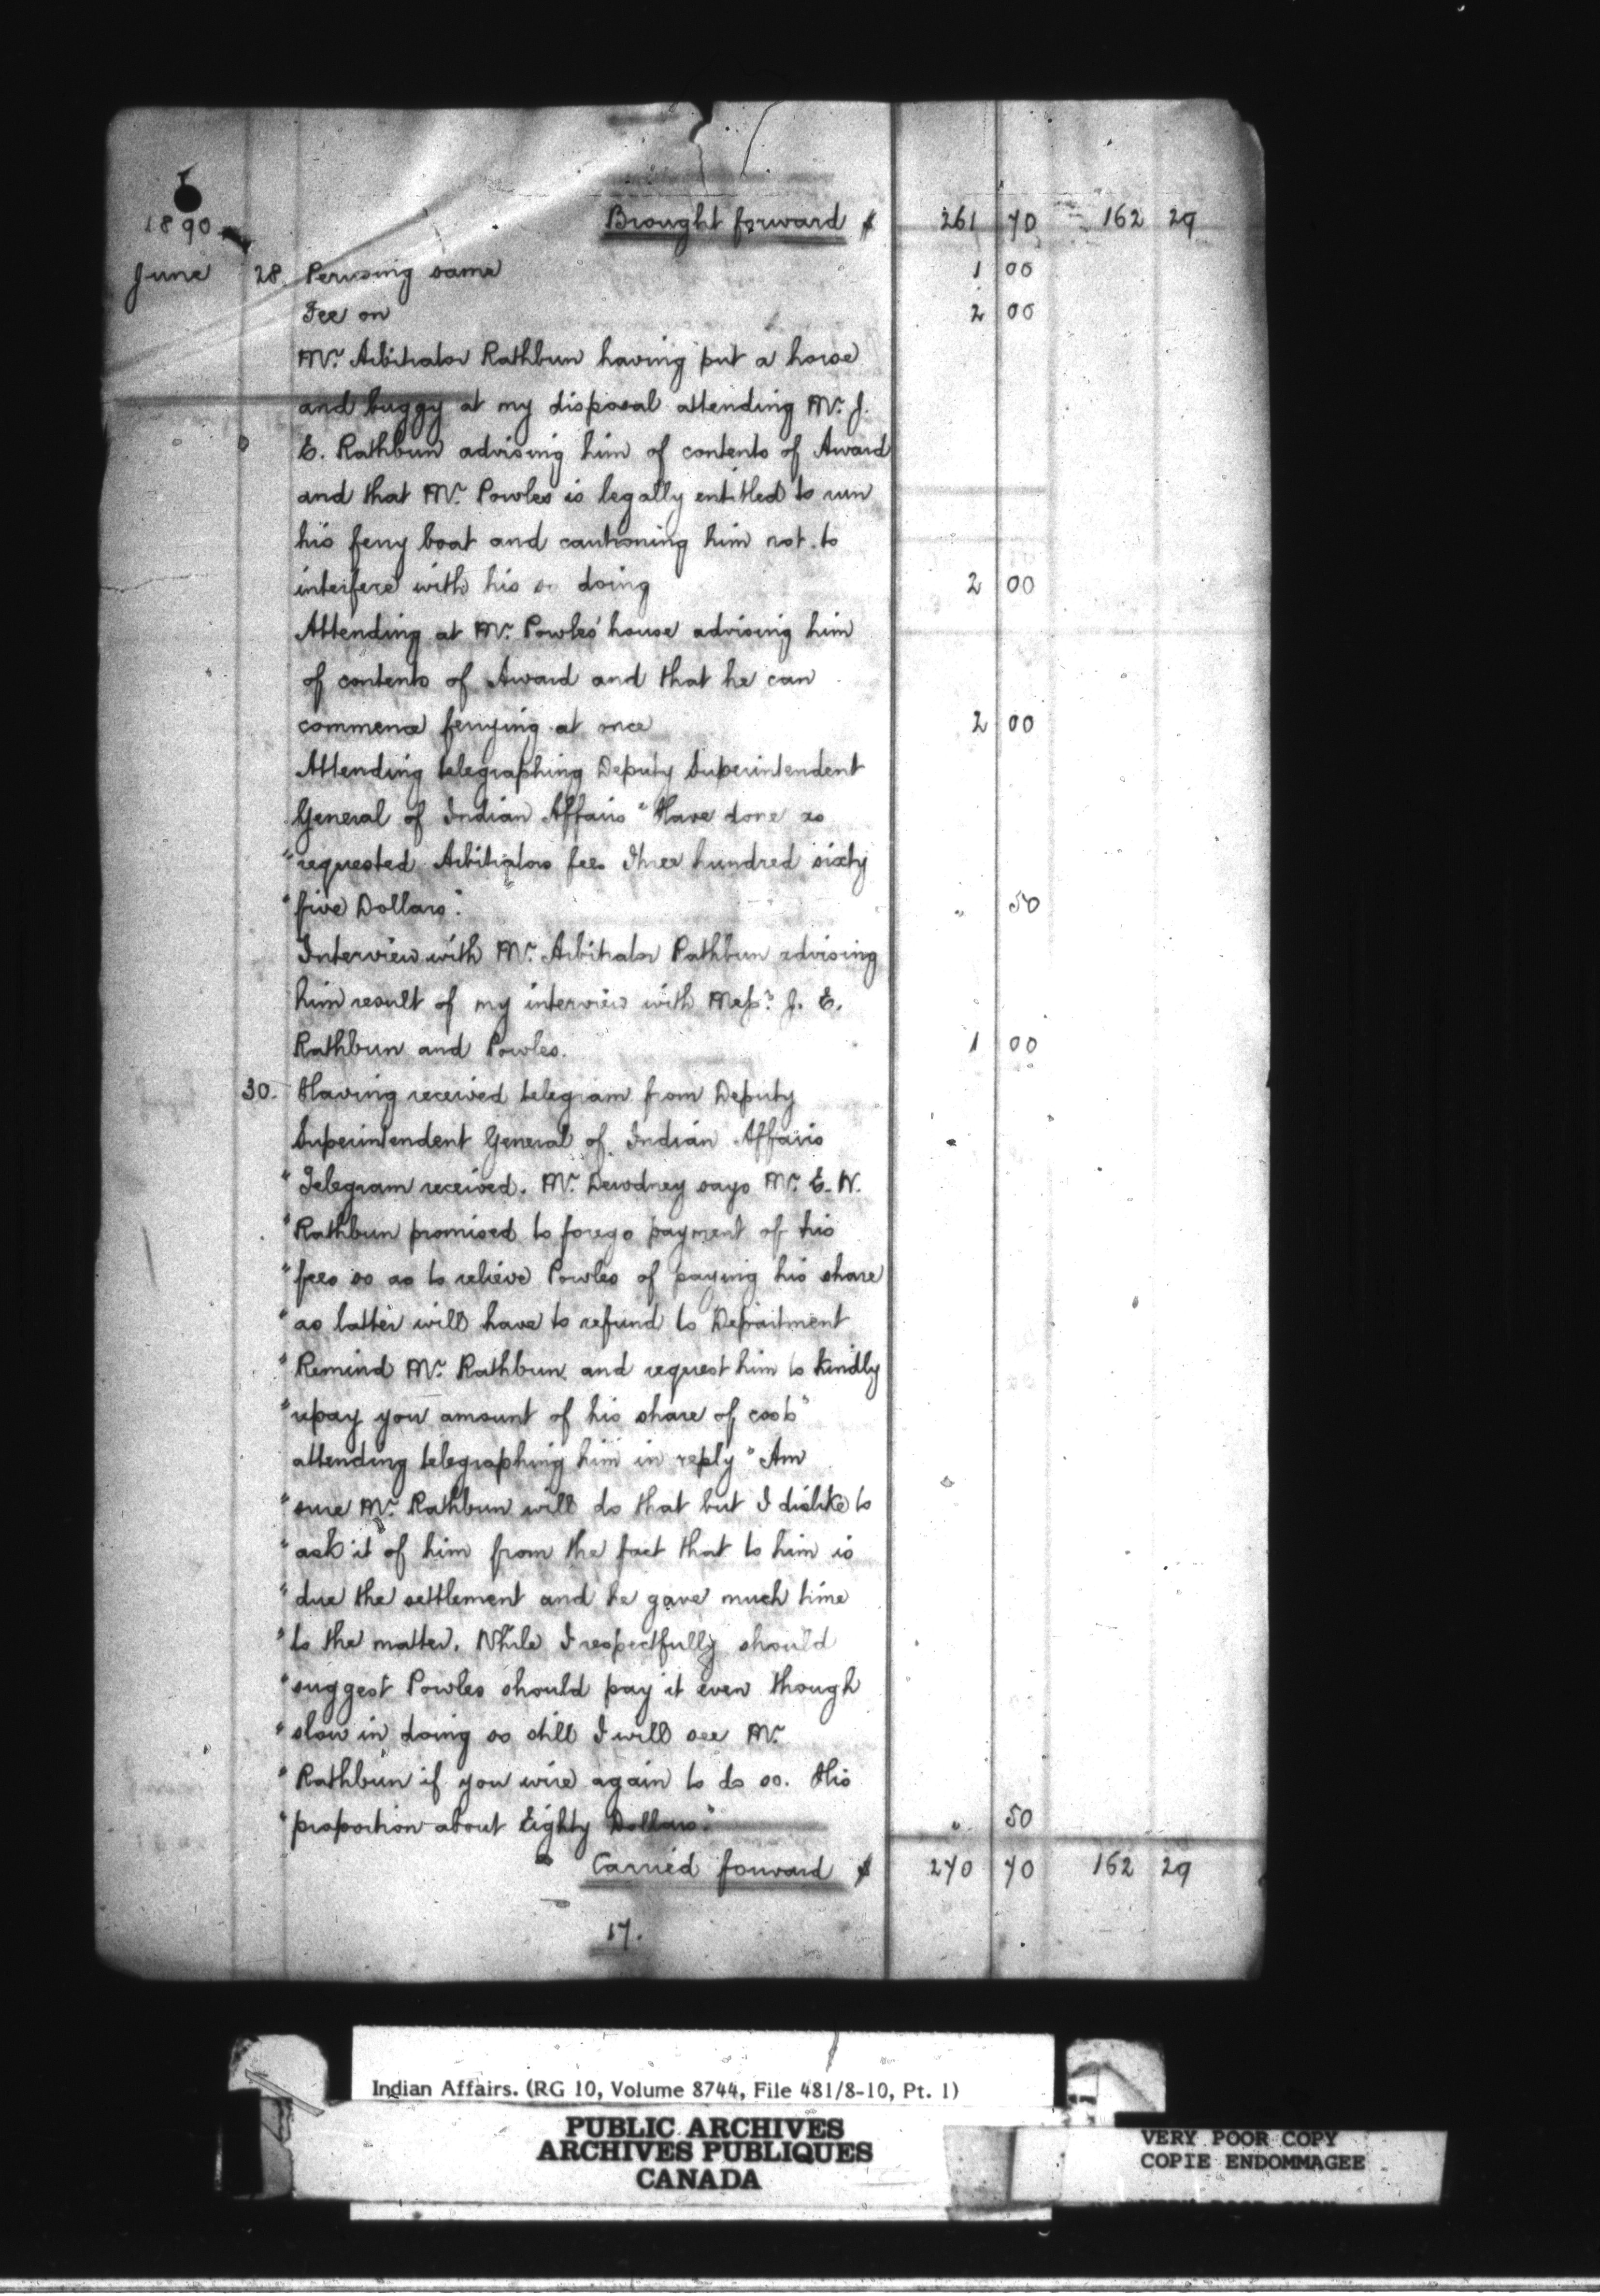 1890
Brought forward $ 261 70 162 29
June 28. Perusing same 1 00
Fee on 2 00
Mr. Arbitrator Rathbun having put a horse
and buggy at my disposal attending Mr. J.
E. Rathbun advising him of contents of Award
and that Mr. Powles is legally entitled to run
his ferry boat and cautioning him not to
interfere with his so doing 2 00
Attending at Mr. Powles' house advising him
of contents of Award and that he can
commence ferrying at once 2 00
Attending telegraphing Deputy Superintendent
General of Indian Affairs "Have done as
"requested Arbitrators fees Three hundred sixty
"five Dollars". " 50
Interview with Mr. Arbitrator Rathbun advising
him result of my interview with Messrs. J. E.
Rathbun and Powles. 1 00
30. Having received telegram from Deputy
Superintendent General of Indian Affairs
"Telegram received. Mr. Dewdney says Mr. E. W.
"Rathbun promised to forego payment of his
"fees so as to relieve Powles of paying his share
"as latter will have to refund to Department
"Remind Mr. Rathbun and request him to kindly
"repay you amount of his share of costs"
attending telegraphing him in reply "Am
"sure Mr. Rathbun will do that but I dislike to
"ask it of him from the fact that to him is
"due the settlement and he gave much time
"to the matter. While I respectfully should
"suggest Powles should pay it even though
"slow in doing so still I will see Mr.
"Rathbun if you wire again to do so. His
"proportion about Eighty Dollars." " 50
Carried forward $ 270 70 162 29
17.
Indian Affairs. (RG 10, Volume 8744, File 481/8-10, Pt. 1)
PUBLIC ARCHIVES
ARCHIVES PUBLIQUES
CANADA
VERY POOR COPY
COPIE ENDOMMAGEE